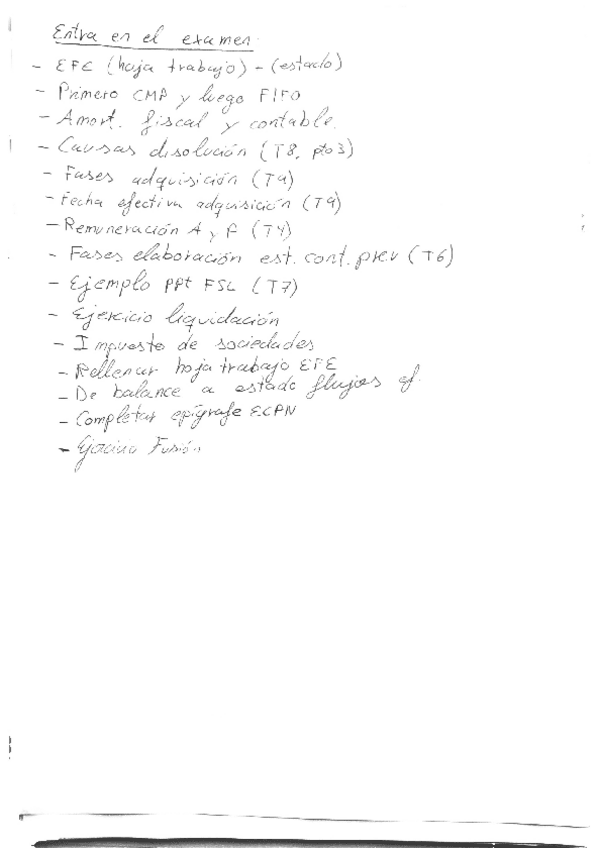 Entra en el examen.
- EFE (hoja trabajo) - (estado)
- Primero CMP y luego FIFO
- Amort. fiscal y contable.
- Causas disolución (T8, pto 3)
- Fases adquisición (T9)
- Fecha efectiva adquisición (T9)
- Remuneración A y F (T4)
- Fases elaboración est. cont. prev (T6)
- Ejemplo PPt FSL (T7)
- Ejercicio liquidación
- Impuesto de sociedades
- Rellenar hoja trabajo EFE
- De balance a estado flujos ef.
- Completar epígrafe ECPN
- Ejercicio Fusión